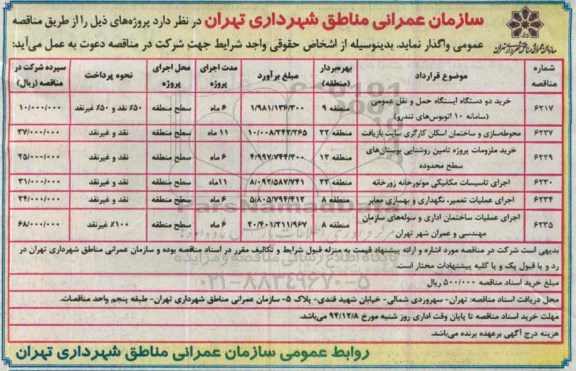 سازمان عمرانی مناطق شهرداری تهران در نظر دارد پروژه‌های ذیل را از طریق مناقصه
عمومی واگذار نماید. بدینوسیله از اشخاص حقوقی واجد شرایط جهت شرکت در مناقصه دعوت به عمل می‌آید:
شماره مناقصه | موضوع قرارداد | بهره‌بردار (منطقه) | مبلغ برآورد | مدت اجرای پروژه | محل اجرای پروژه | نحوه پرداخت | سپرده شرکت در مناقصه (ریال)
۶۲۱۷ | خرید دو دستگاه ایستگاه حمل و نقل عمومی (سامانه ۱۰ اتوبوس‌های تندرو) | منطقه ۹ | ۱/۹۸۱/۱۳۶/۳۰۰ | ۶ ماه | سطح منطقه | ۵۰٪ نقد و ۵۰٪ غیرنقد | ۱۰/۰۰۰/۰۰۰
۶۲۲۷ | محوطه‌سازی و ساختمان اسکان کارگری سایت بازیافت | منطقه ۲۲ | ۱۰/۰۰۸/۲۴۲/۲۶۵ | ۱۱ ماه | سطح منطقه | نقد و غیرنقد | ۳۷/۰۰۰/۰۰۰
۶۲۲۹ | خرید ملزومات پروژه تامین روشنایی بوستان‌های سطح محدوده | منطقه ۱۲ | ۴/۹۹۷/۷۴۴/۳۰۰ | ۶ ماه | سطح منطقه | نقد و غیرنقد | ۲۵/۰۰۰/۰۰۰
۶۲۳۰ | اجرای تاسیسات مکانیکی موتورخانه زورخانه | منطقه ۲۲ | ۸/۰۹۲/۵۸۷/۷۴۱ | ۱۱ماه | سطح منطقه | نقد و غیرنقد | ۳۱/۰۰۰/۰۰۰
۶۲۳۴ | اجرای عملیات تعمیر، نگهداری و بهسازی معابر | منطقه ۸ | ۵/۸۰۵/۷۹۴/۴۱۲ | ۶ ماه | سطح منطقه | نقد و غیرنقد | ۲۴/۰۰۰/۰۰۰
۶۲۳۵ | اجرای عملیات ساختمان اداری و سوله‌های سازمان مهندسی و عمران شهر تهران | منطقه ۸ | ۲۰/۴۰۱/۳۱۱/۹۶۷ | ۶ ماه | سطح منطقه | ۱۰۰٪ غیرنقد | ۶۸/۰۰۰/۰۰۰
بدیهی است شرکت در مناقصه مورد اشاره و ارائه پیشنهاد قیمت به منزله قبول شرایط و تکالیف مقرر در اسناد مناقصه بوده و سازمان عمرانی مناطق شهرداری تهران در
رد و یا قبول یک و یا کلیه پیشنهادات مختار است.
مبلغ خرید اسناد مناقصه ۵۰۰/۰۰۰ ریال
محل دریافت اسناد مناقصه: تهران- سهروردی شمالی- خیابان شهید قندی- پلاک ۵- سازمان عمرانی مناطق شهرداری تهران- طبقه پنجم واحد مناقصات.
مهلت خرید اسناد مناقصه تا پایان وقت اداری روز شنبه مورخ ۹۴/۱۲/۸ می‌باشد.
هزینه درج آگهی برعهده برنده می‌باشد.
روابط عمومی سازمان عمرانی مناطق شهرداری تهران
۰۲۱-۸۸۳۴۹۶۷۰-۵